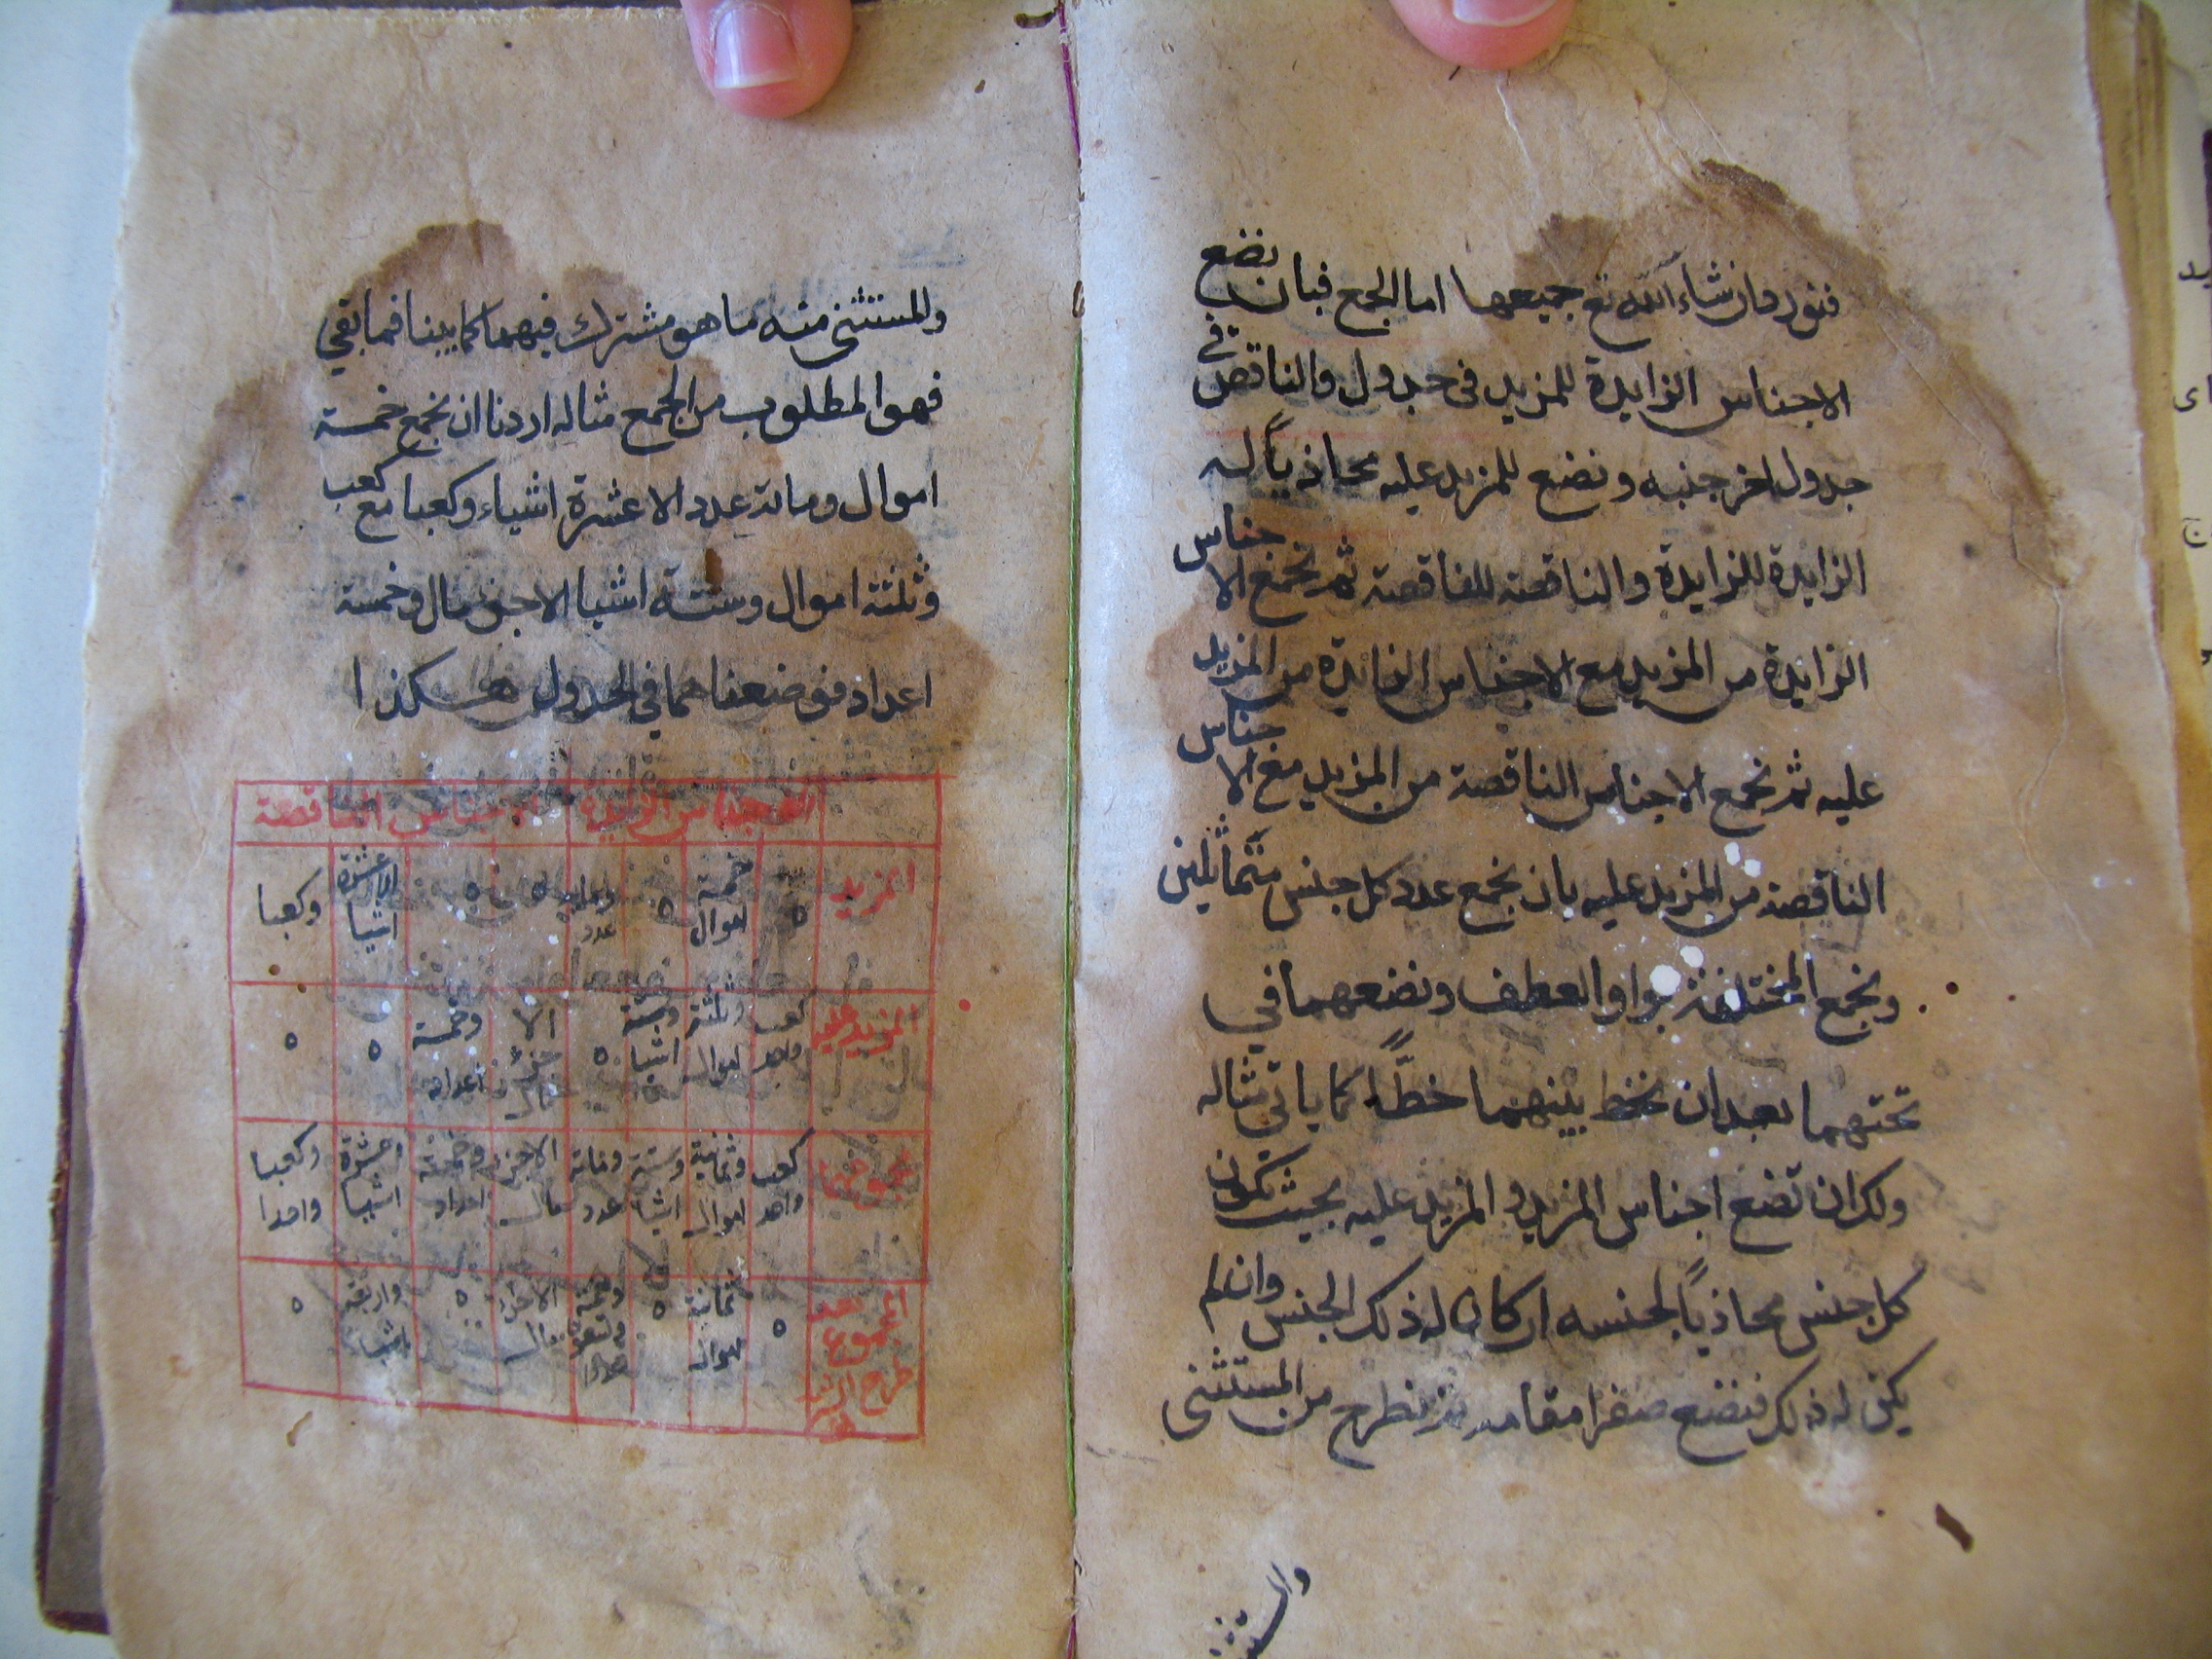 فنوردها ان شاء الله تع جميعها اما الجمع فبان نضع
الاجناس الزايدة للمزيد في جدول والناقص في
جدول اخر جنبه ونضع للمزيد عليه محاذيا له
الزايدة للزايدة والناقصة للناقصة ثم نجمع الاجناس
الزايدة من المزيد مع الاجناس الزايدة من المزيد
عليه ثم نجمع الاجناس الناقصة من المزيد مع الاجناس
الناقصة من المزيد عليه بان نجمع عدد كل جنس متماثلين
ونجمع المختلفة بواو العطف ونضعهما في
تحتهما بعد ان نخط بينهما خطا كما ياتي مثاله
ولكن ان تضع اجناس المزيد و المزيد عليه بحيث تكون
كل جنس محاذيا لجنسه ان كان له ذلك الجنس وان لم
يكن له ذلك فنضع صفرا مقامه ثم نطرح من المستثنى
والمستثنى
والمستثنى منه ما هو مشترك فيهما كما بينا فما بقي
فهو المطلوب من الجمع مثاله اردنا ان نجمع خمسة
اموال ومائة عدد الا عشرة اشياء وكعبا مع كعب
وثلثة اموال وستة اشيا الا جزء مال وخمسة
اعداد فوضعناهما في الجدول هكذا
الاجناس الزايدة الاجناس الناقصة
المزيد ٥ خمسة اموال ٥ ومائة عدد ٥ ٥ الا عشرة اشيا وكعبا
المزيد عليه كعب واحد وثلثة اموال وستة اشيا ٥ الا جزء مال وخمسة اعداد ٥ ٥
مجموعهما كعب واحد وثمانية اموال وستة اشيا ومائة عدد الا جزء مال وخمسة اعداد وعشرة اشيا وكعبا واحدا
المجموع بعد طرح ٥ ثمانية اموال ٥ وخمسة وتسعون عددا الا جزء مال ٥ واربعة اشيا ٥